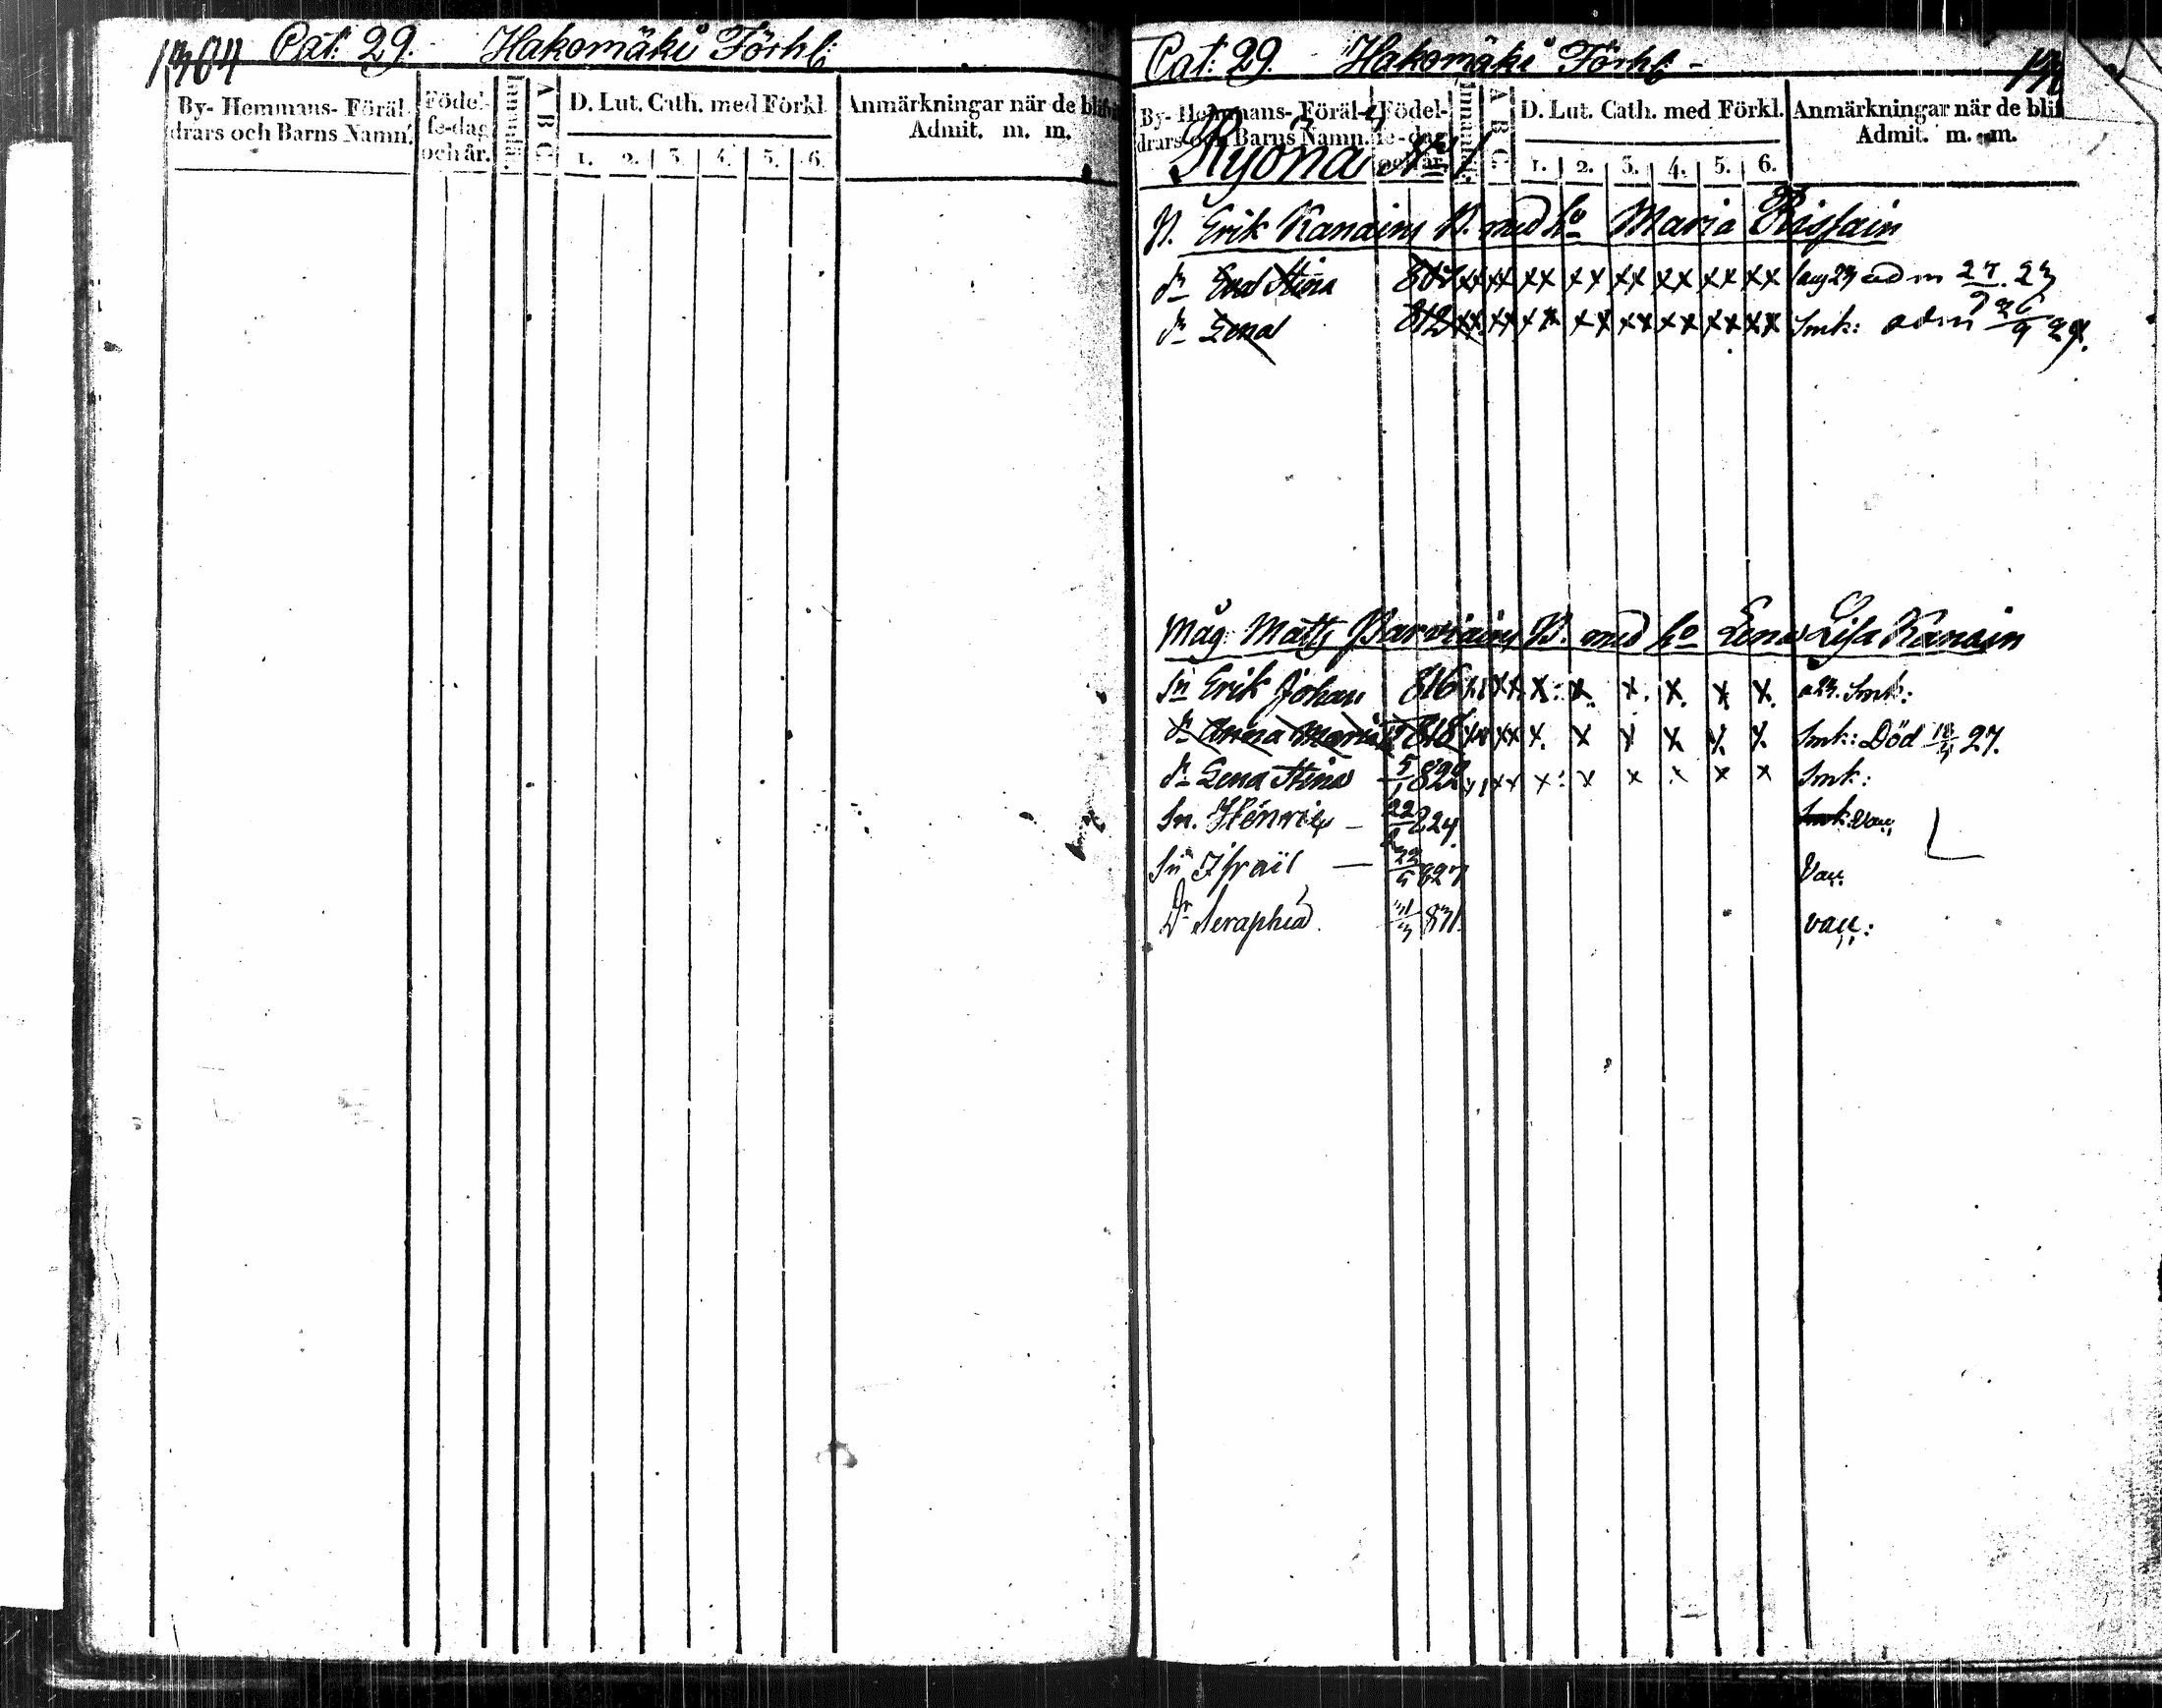 1304 Cat: 29. Hakomäki Förhl:
By- Hemmans- Föräl-
drars och Barns Namn.
Födel-
se-dag
och år.
Innanläs.
A B C
D. Lut. Cath. med Förkl.
1. 2. 3. 4. 5. 6.
Anmärkningar när de blifvit
Admit. m. m.
Cat: 29. Hakomäki Förhl: -
By- Hemmans- Föräl-
drars och Barns Namn.
Födel-
se-dag
och år.
Innanläs.
A B C
D. Lut. Cath. med Förkl.
1. 2. 3. 4. 5. 6.
Anmärkningar när de blif
Admit. m. m.
Ryönä No 1
Erik Kanains B. med ho Maria
dr Eva Stina xx xx xx xx xx xx xx xx aug 23 adm 23
dr Lena 812 xx xx xx xx xx xx xx xx Smk: adm 26/9 29.
Måg Matts Parviains B. med ho Lena Lisa Kanain
Sn Erik Johan 816 xx xx. x: x. x. x. x x. a23. Smk:
dr Anna Maria 818 xx xx x. x x x. x. x. Smk: Död 27.
dr Lena Stina 5/1 822 xx xx x: x x x x x Smk:
Sn. Henric — 22/2 824. Smk. van
Sn Israil — 23/5 827 Van
Dr Seraphia. 31/3 831. van: